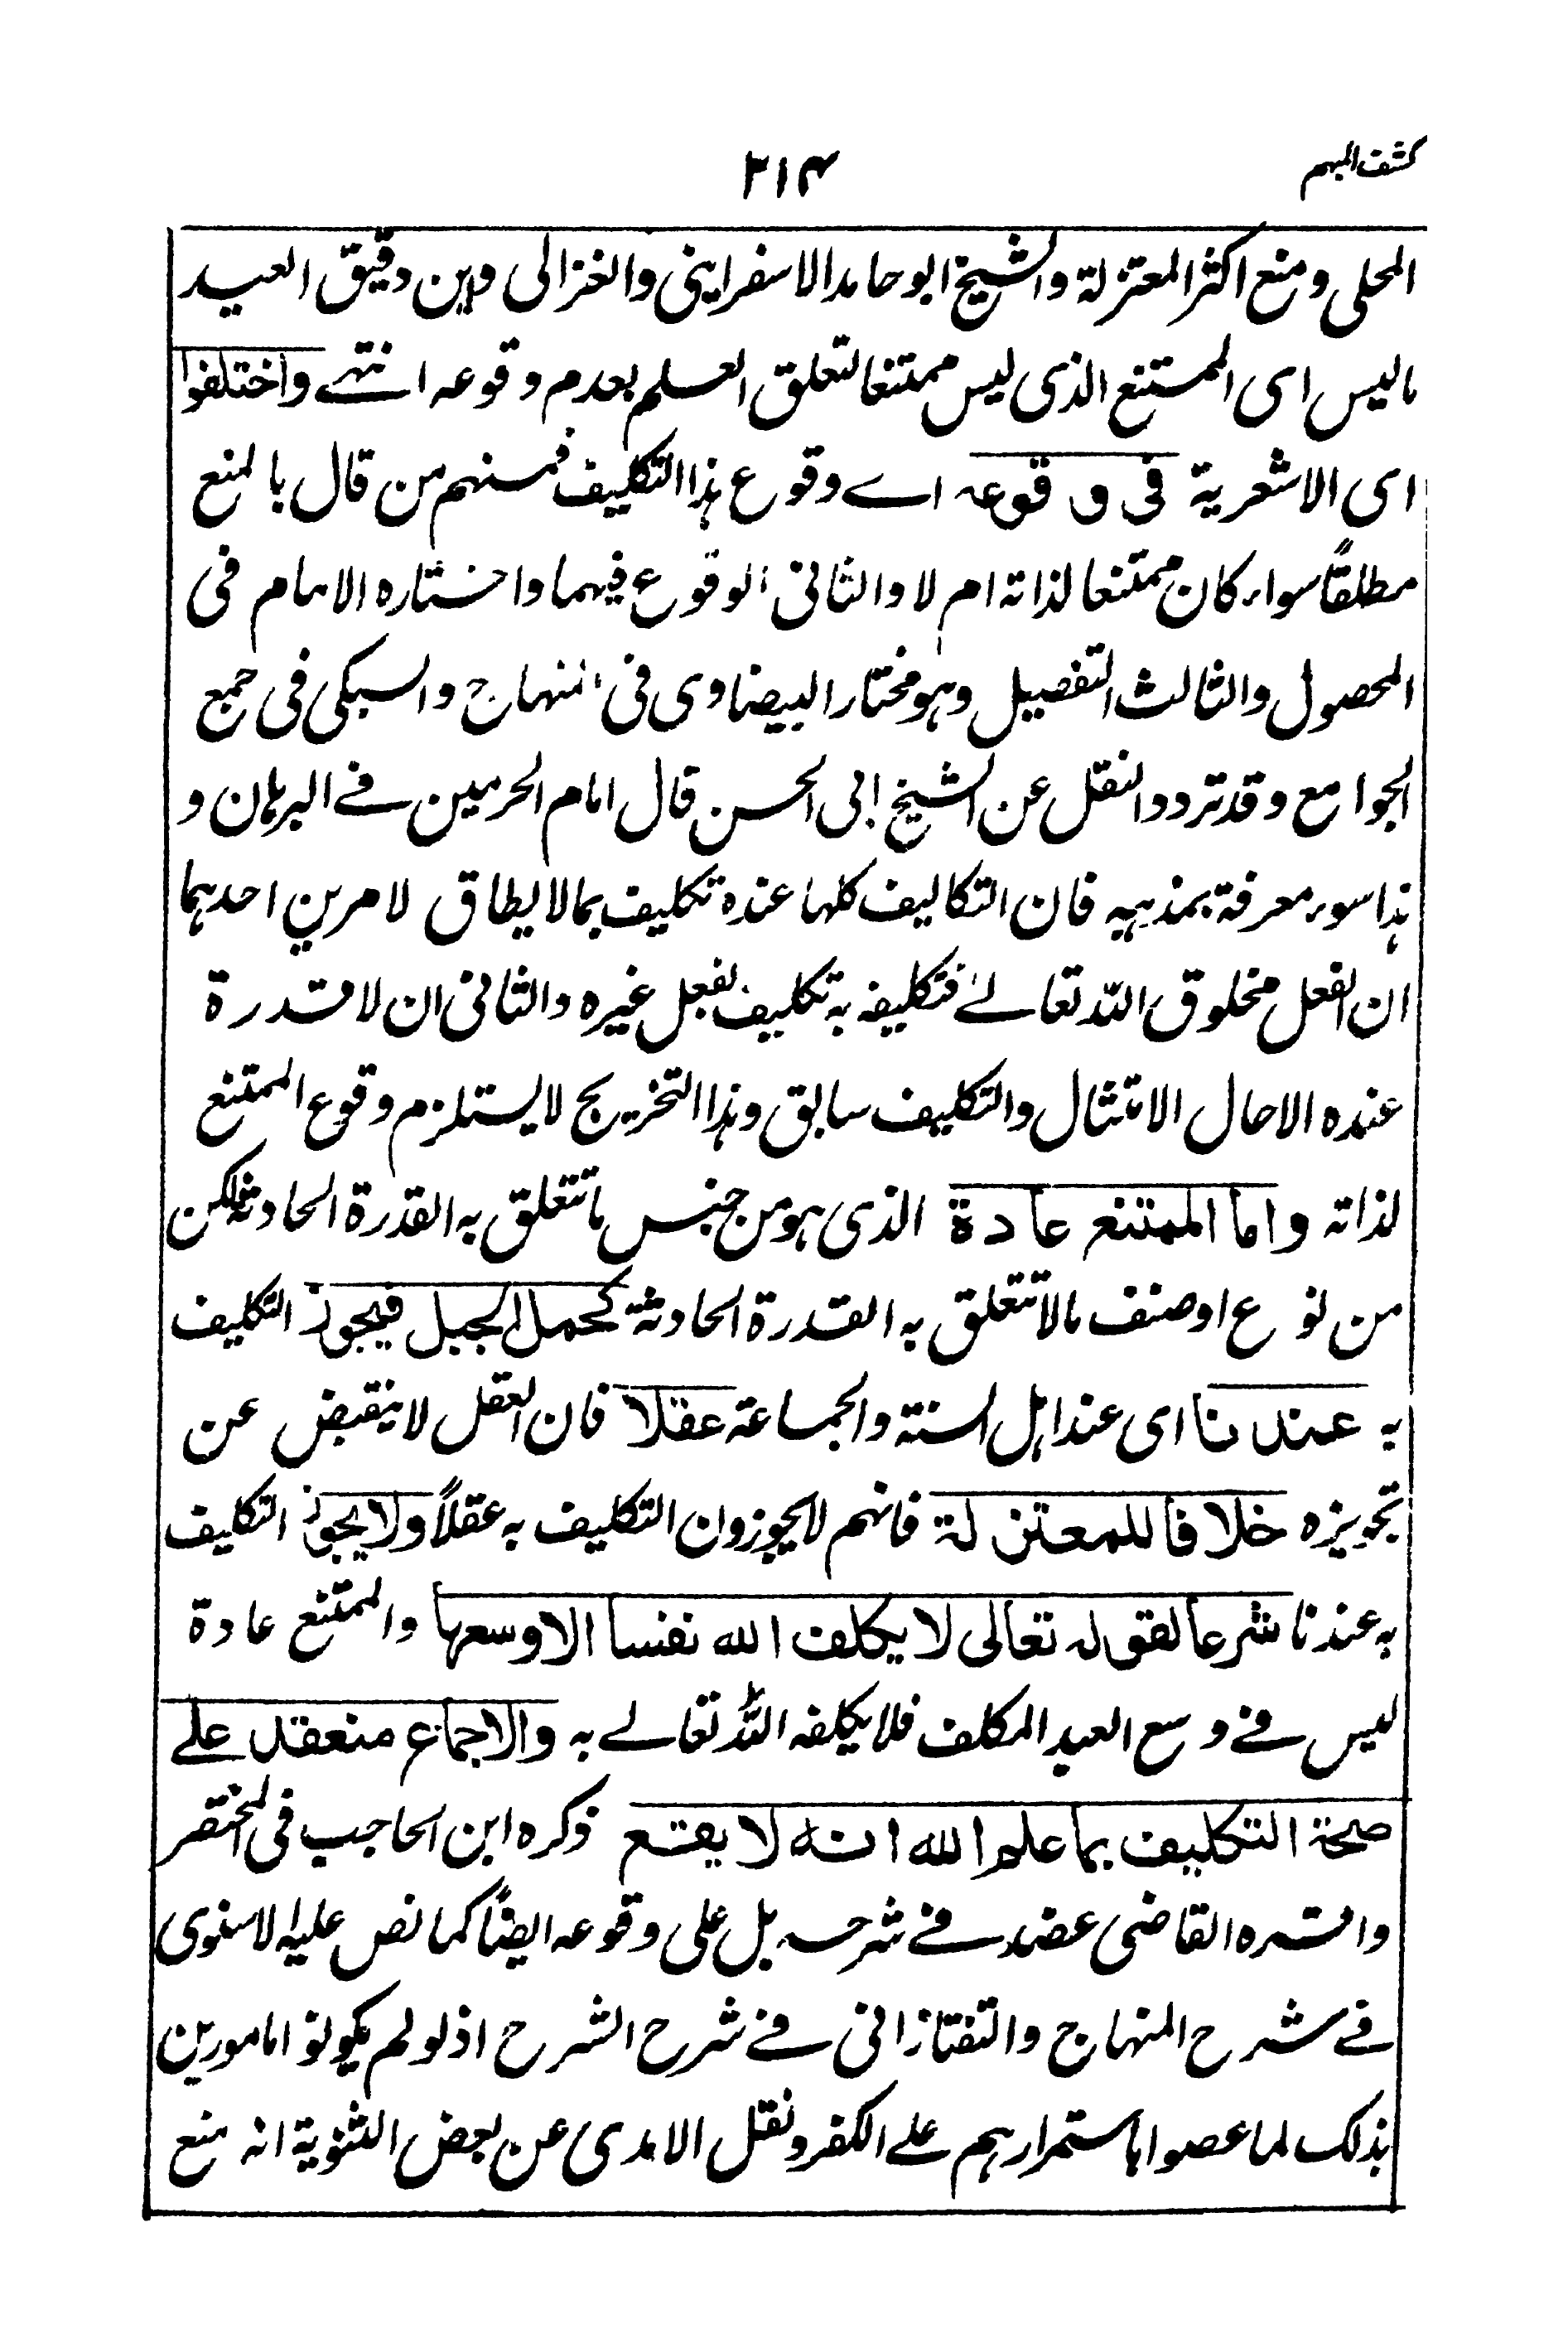 كشف المبهم
٢١٤
المحلى ومنع اكثر المعتزلة والشيخ ابو حامد الاسفراينى والغزالى وابن دقيق العيد
ما ليس اى الممتنع الذى ليس ممتنعا لتعلق العلم بعدم وقوعه انتهے واختلفوا
اى الاشعرية فى وقوعه اے وقوع هذا التكليف فمنهم من قال بالمنع
مطلقًا سواء كان ممتنعا لذاته ام لا والثانى الوقوع فيهما واختاره الامام فى
المحصول والثالث التفصيل وهو مختار البيضاوى فى المنهاج والسبكى فى جمع
الجوامع وقد تردد النقل عن الشيخ ابى الحسن قال امام الحرمين فے البرهان و
هذا سوء معرفة بمذهبه فان التكاليف كلها عنده تكليف بما لا يطاق لامرين احدهما
ان الفعل مخلوق الله تعالےٰ فتكليفه به تكليف بفعل غيره والثانى ان لا قدرة
عنده الا حال الامتثال والتكليف سابق وهذا التخريج لا يستلزم وقوع الممتنع
لذاته واما الممتنع عادة الذى هو من جنس ما تتعلق به القدرة الحادثة لكن
من نوع او صنف ما لا تتعلق به القدرة الحادثة كحمل الجبل فيجوز التكليف
به عندنا اى عند اهل السنة والجماعة عقلا فان العقل لا ينقبض عن
تجويزه خلافا للمعتزلة فانهم لا يجوزون التكليف به عقلاً ولا يجوز التكليف
به عندنا شرعا لقوله تعالى لا يكلف الله نفسا الا وسعها والممتنع عادة
ليس فے وسع العبد المكلف فلا يكلفه الله تعالے به والاجماع منعقد علے
صحة التكليف بما علم الله انه لا يقع ذكره ابن الحاجب فى المختصر
واقره القاضى عضد فے شرحه بل على وقوعه ايضًا كما نص عليه الاسنوى
فے شرح المنهاج والتفتازانى فے شرح الشرح اذ لو لم يكونوا مامورين
بذلك لما عصوا باستمرارهم علے الكفر ونقل الامدى عن بعض الثنوية انه منع